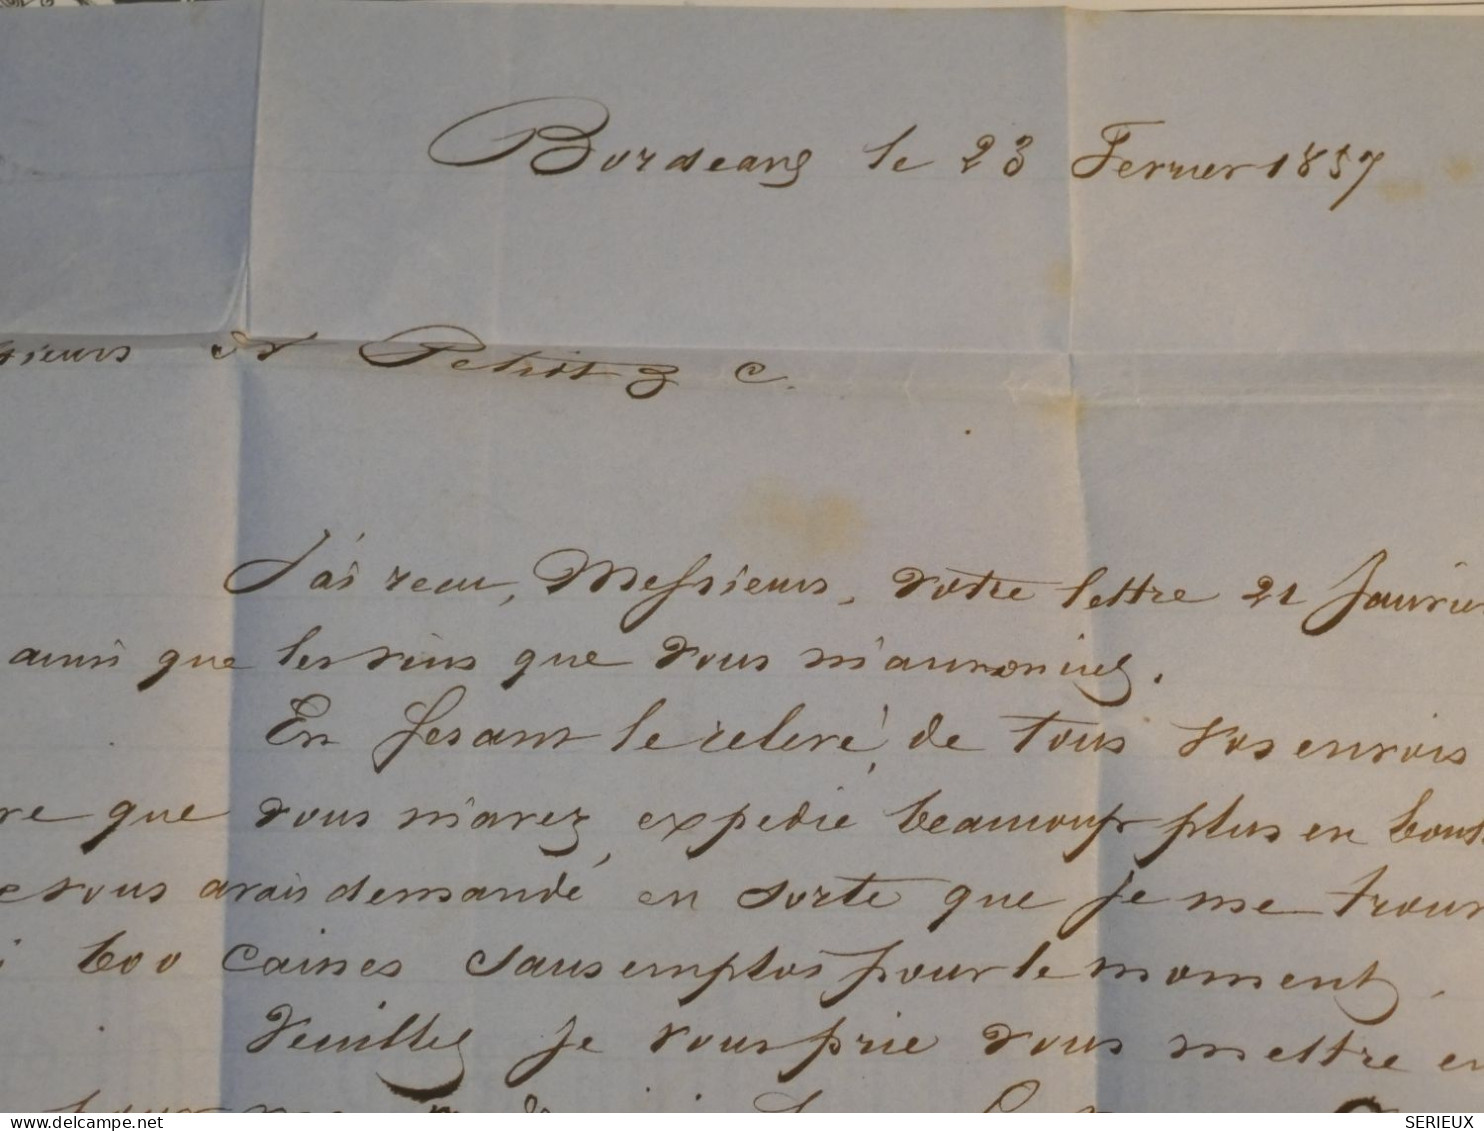 Bordeaux le 23 Fevrier 1857
sieurs A Petiot & C.
J'ai recu, Messieurs, votre lettre 21 Janvier
ainsi que les vins que vous m'annonciez.
En fesant le relevé, de tous vos envois
re que vous m'avez, expedié beaucoup plus en bout
e vous avais demandé, en sorte que je me trouv
i 600 caisses sans emplois pour le moment.
Veuillez je vous prie vous mettre en
SERIEUX